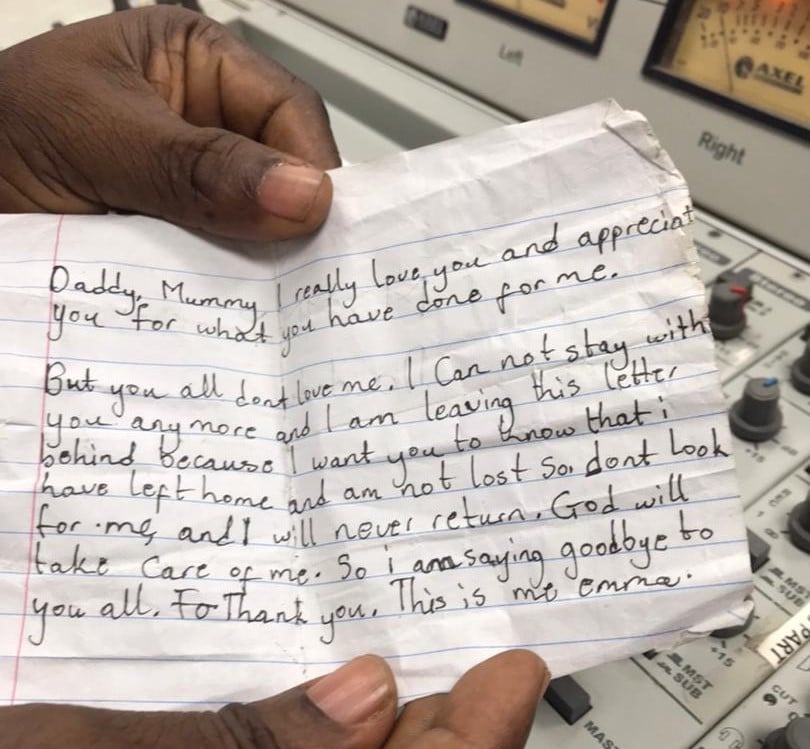 Left
AXEL
Right
Daddy, Mummy, I really love you and appreciat
you for what you have done for me.
But you all dont love me. I Can not stay with
you anymore and I am leaving this letter
behind because I want you to know that i
have left home and am not lost so. dont Look
for me, and I will never return. God will
take Care of me. So i am saying goodbye to
you all. Fo Thank you. This is me emma.
+15
MST
SUB
+15
MST
SUB
PART
CUT
MAS